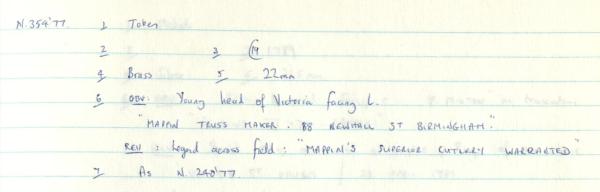 N.354'77. 1 Token
2 3 C19
4 Brass 5 22mm
6 OBV: Young head of Victoria facing L.
"MAPPIN TRUSS MAKER. 88 NEWHALL ST BIRMINGHAM."
REV: Legend across field: "MAPPIN'S SUPERIOR CUTLERY WARRANTED."
7 As N.248'77.